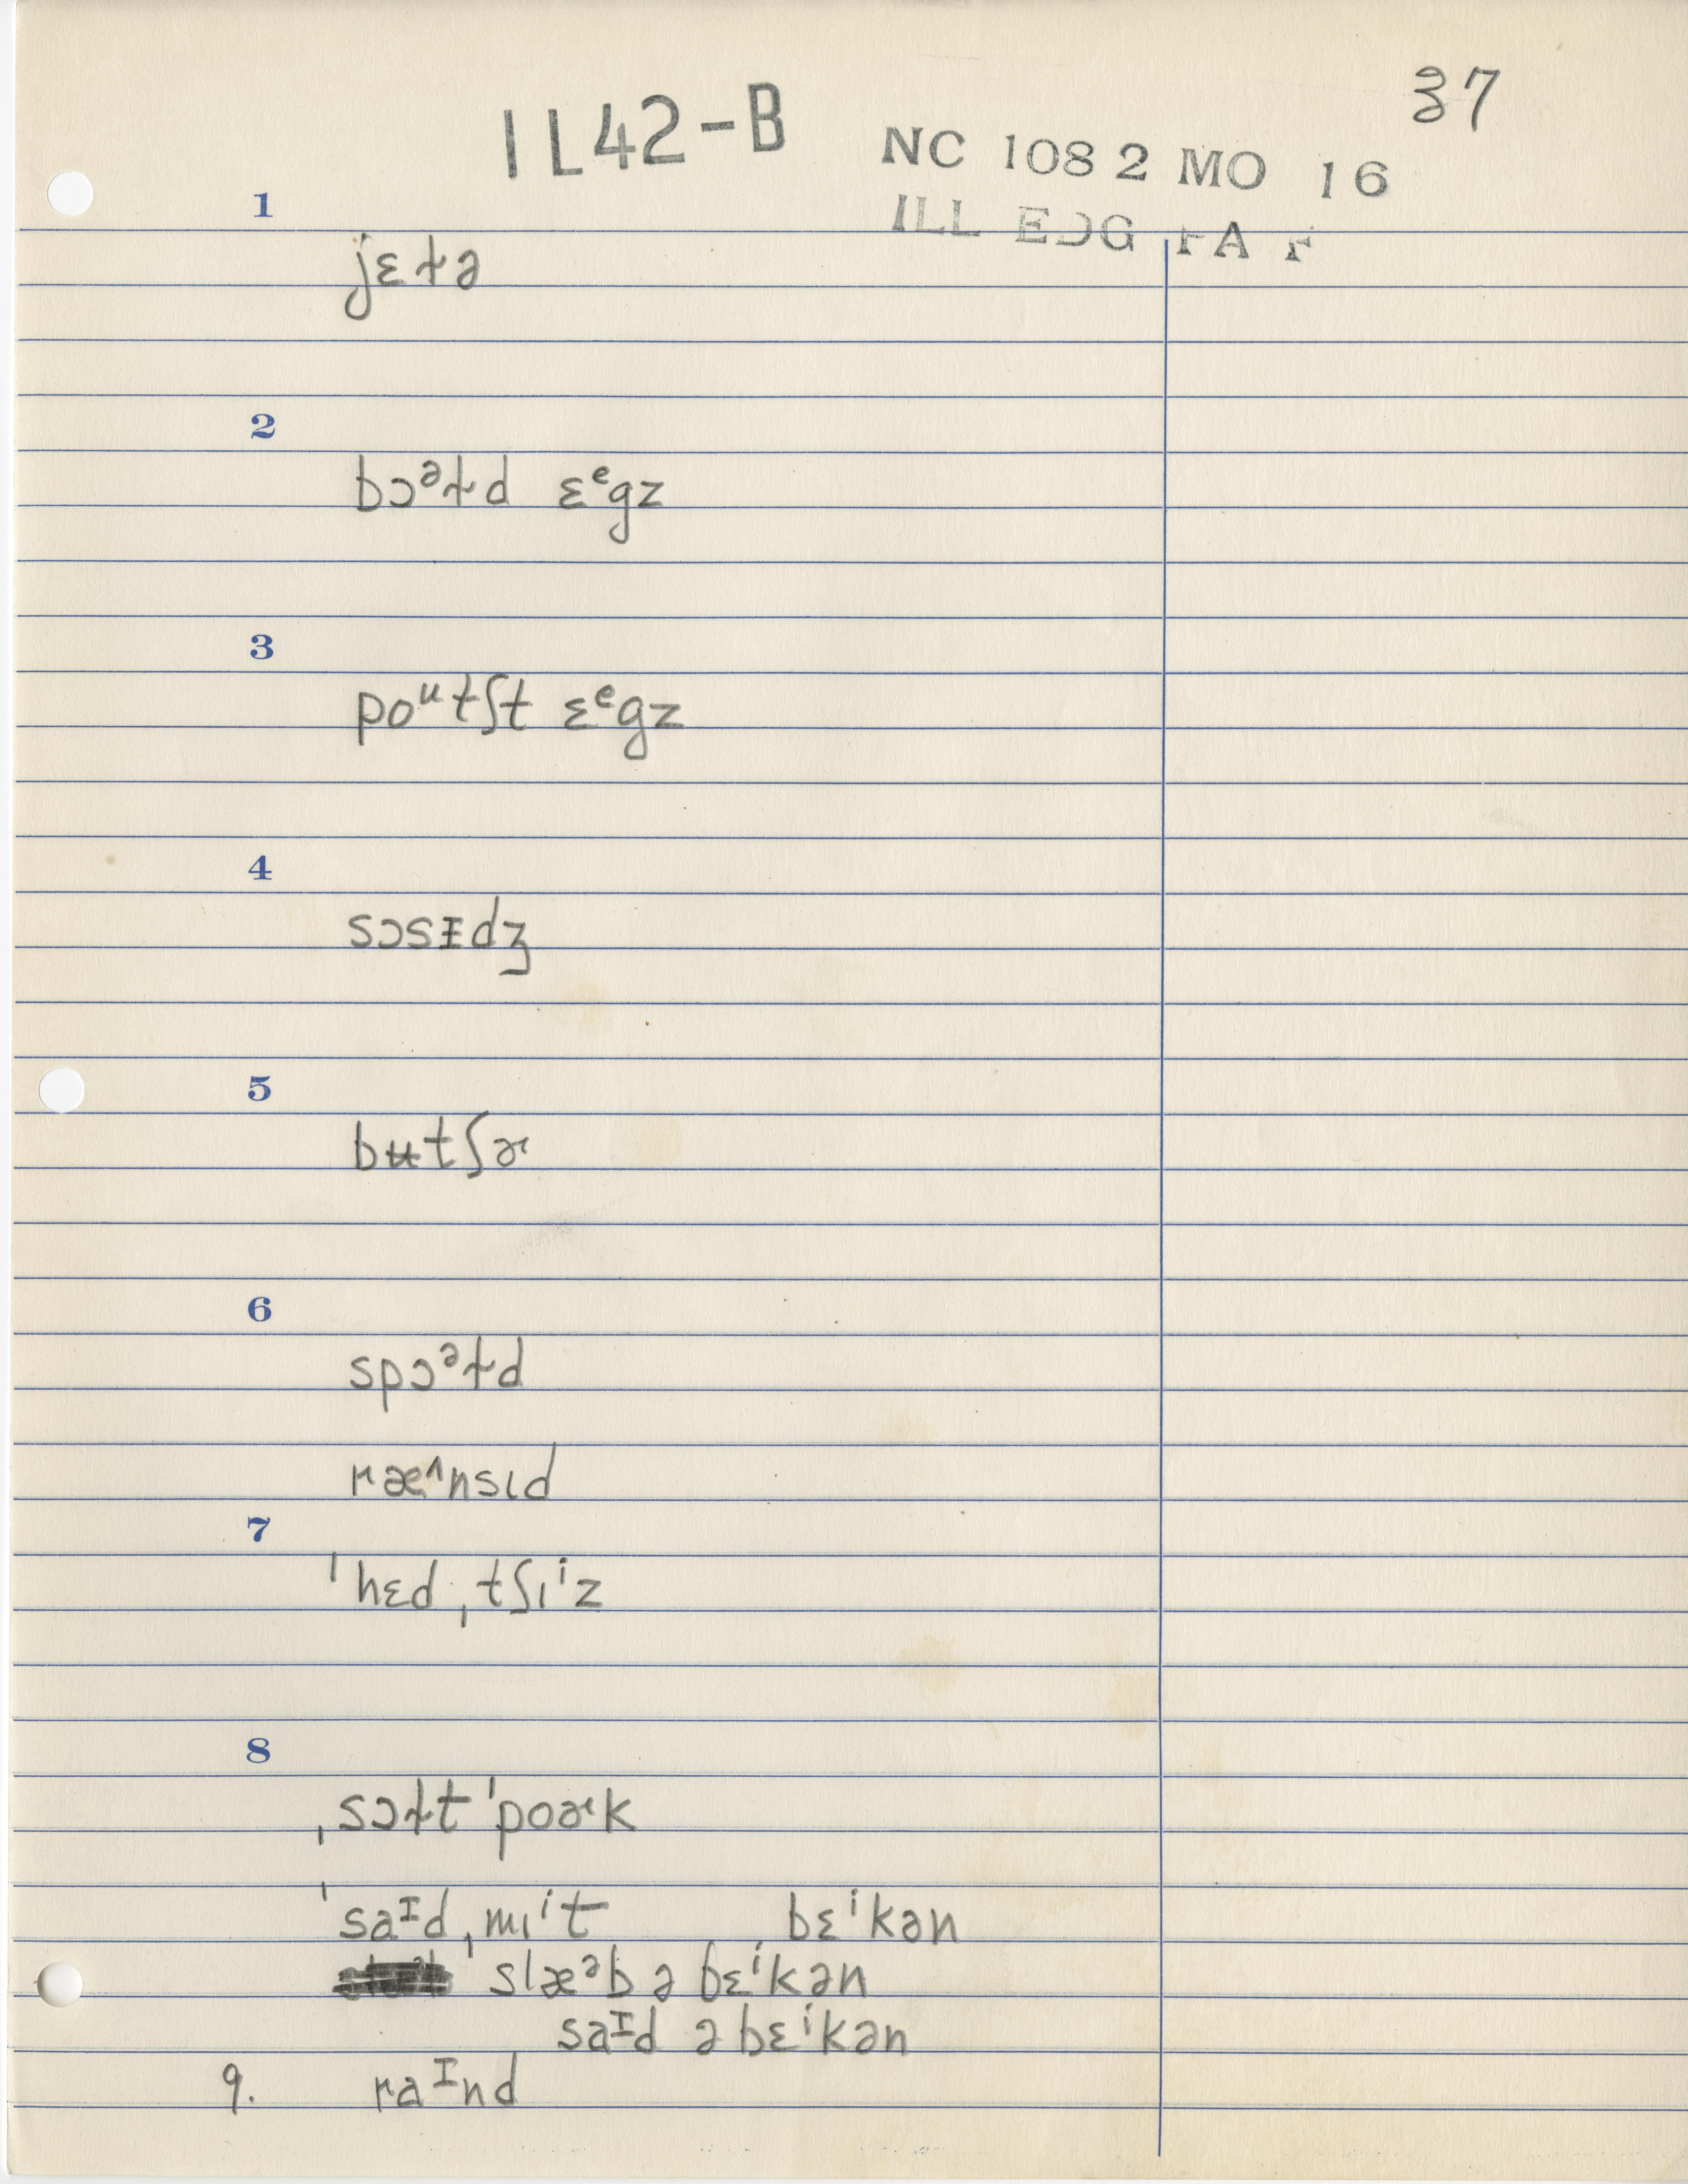 37
1L42-B
NC 108 2 MO 16
ILL EDG PAR
1
jɛɫə
2
bɔᵊɫd ɛᵉgz
3
poᵘtʃt ɛᵉgz
4
sɔsᵻdʒ
5
bʉtʃɚ
6
spɔᵊɫd
ræ^nsɩd
7
ˈhɛdˌtʃɩⁱz
8
ˌsɔɫt ˈpoɚk
ˈsaᴵdˌmɩⁱt bɛⁱkən
ˈslæᵊb ə bɛⁱkən
saᴵd ə bɛⁱkən
9. raᴵnd